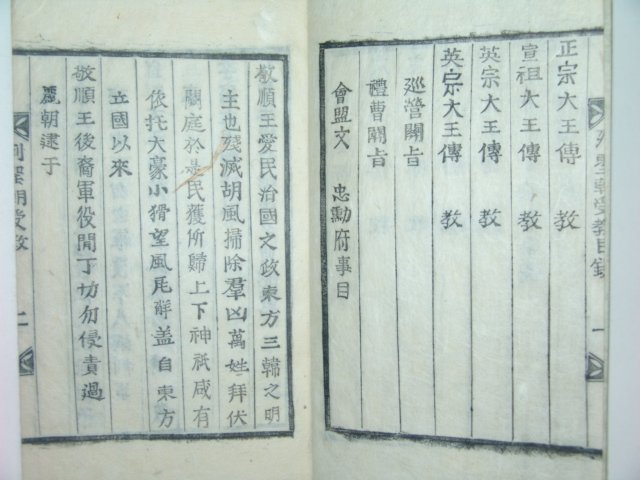 正宗大王傳 教
宣祖大王傳 教
英宗大王傳 教
英宗大王傳 教
巡營關旨
禮曹關旨
會盟文 忠勳府事目
敬順王愛民治國之政東方三韓之明
主也殘滅胡風掃除羣凶萬姓拜伏
闕庭於是民獲所歸上下神祇咸有
依托大豪小猾望風瓦解盖自東方
立國以來
敬順王後裔軍役閒丁切勿侵責過
麗朝逮于
列聖朝受教 二